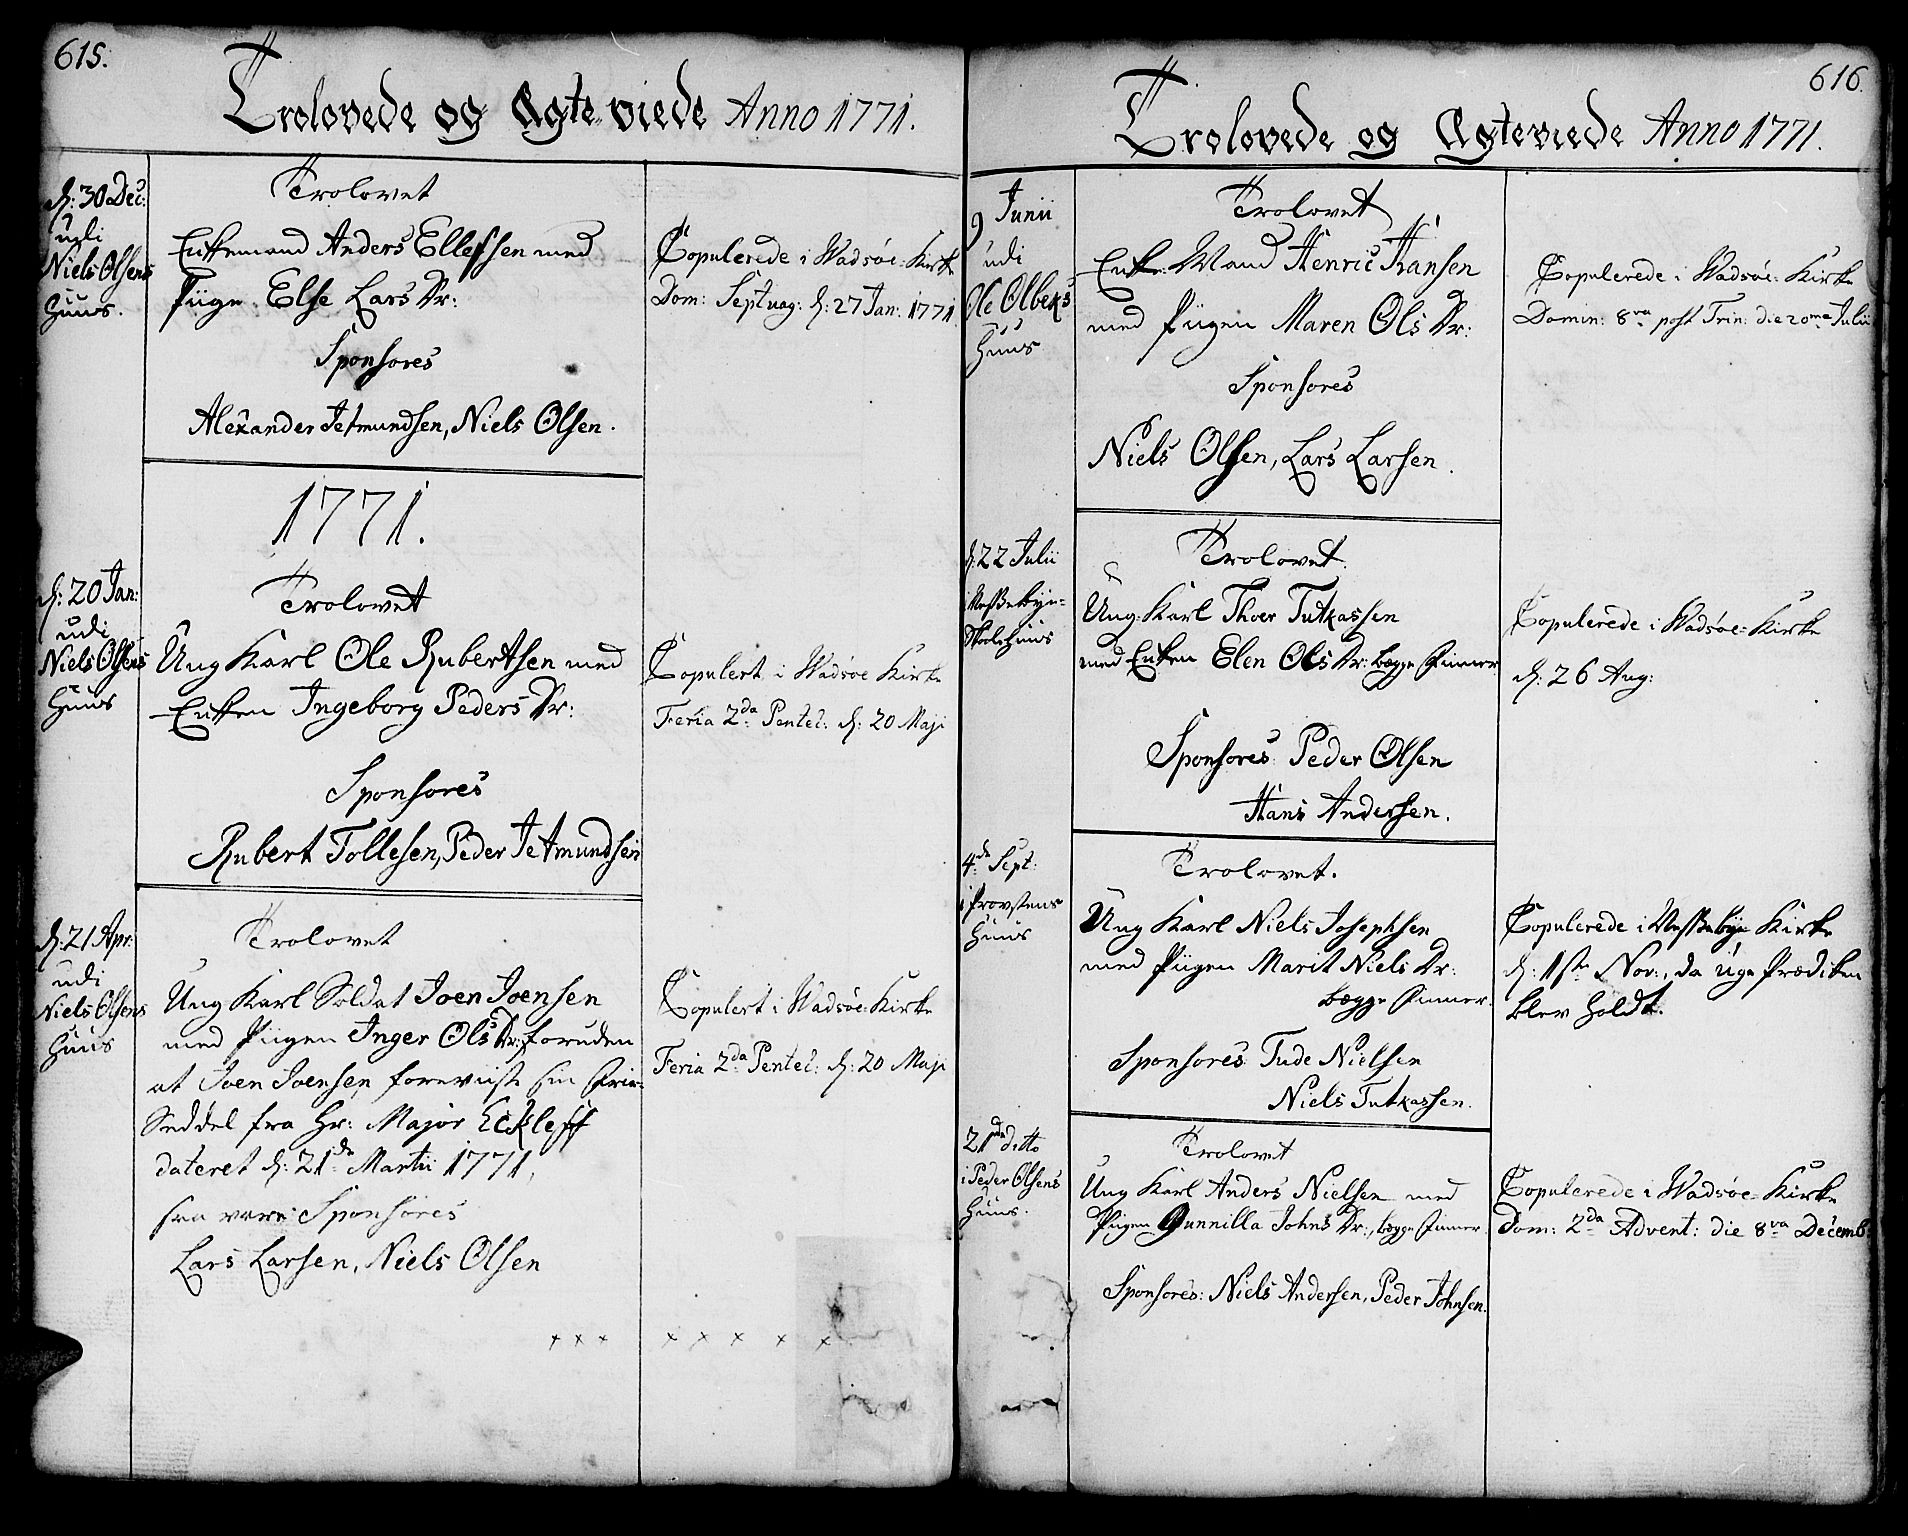 615.
Trolovede og Ægte viede Anno 1771.
d: 30 Dec:
udi
Niels Olsens
Huus.
Trolovet
Enkemand Anders Ellefsen med
Piige Else Lars Dr:
Sponsores
Alexander Jetmundsen, Niels Olsen.
Copulerede i Wadsöe Kirke
Dom: Septuag: d: 27 Jan: 1771
1771.
d: 20 Jan:
udi
Niels Olsens
Huus
Trolovet
Ung Karl Ole Rubertsen med
Enken Ingeborg Peders Dr:
Sponsores
Rubert Tollesen, Peder Jetmundsen
Copulert i Wadsöe Kirke
Feria 2da Pentec: d: 20 Maji
d: 21 Apr:
udi
Niels Olsens
Huus
Trolovet
Ung Karl Soldat Joen Joensen
med Piigen Inger Ols Dr: foruden
at Joen Joensen foreviiste sin Frie
Seddel fra Hr: Major Eckleff
dateret d: 21de Martii 1771,
saa vare Sponsores
Lars Larsen, Niels Olsen
Copulert i Wadsöe Kirke
Feria 2da Pentec: d: 20 Maji
x x x x x x x x
616.
Trolovede og Ægteviede Anno 1771.
9 Junii
udi
Ole Olbeks
Huus
Trolovet
Enke-Mand Henric Hansen
med Piigen Maren Ols Dr:
Sponsores
Niels Olsen, Lars Larsen.
Copulerede i Wadsöe Kirke
Domin: 8va post Trin: die 20ma Julii
d: 22 Julii
i Næssebye
Skolehuus
Trolovet.
Ung Karl Thoer Tutkassen
med Enken Elen Ols Dr: begge Finner
Sponsores Peder Olsen
Hans Andersen.
Copulerede i Wadsöe Kirke
d: 26 Aug:
4de Sept:
i Provstens
Huus
Trolovet.
Ung Karl Niels Josephsen
med Piigen Marit Niels Dr:
begge Finner.
Sponsores Tude Nielsen
Niels Tutkassen.
Copulerede i Næssebye Kirke
d: 1ste Nov:, da uge Prædiken
blev holdt.
21de ditto
i Peder Olsens
Huus.
Trolovet
Ung Karl Anders Nielsen med
Piigen Gunnilla Johns Dr:, begge Finner
Sponsores: Niels Andersen, Peder Johnsen.
Copulerede i Wadsöe Kirke
Dom: 2da Advent: die 8va Decemb